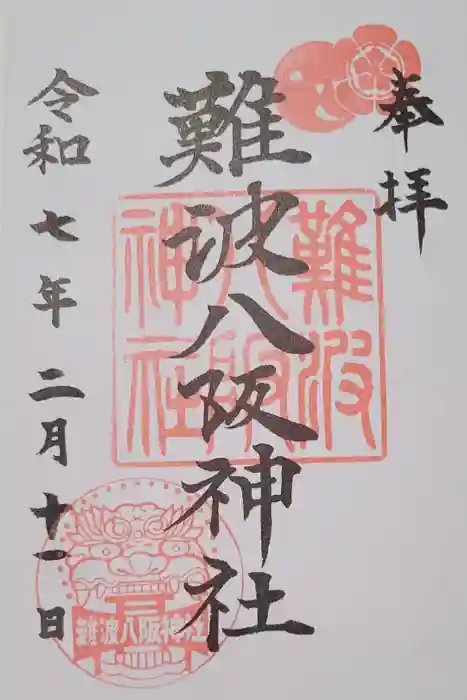 奉拝
難波八阪神社
令和七年二月十一日
難波
八阪
神社
難波八阪神社